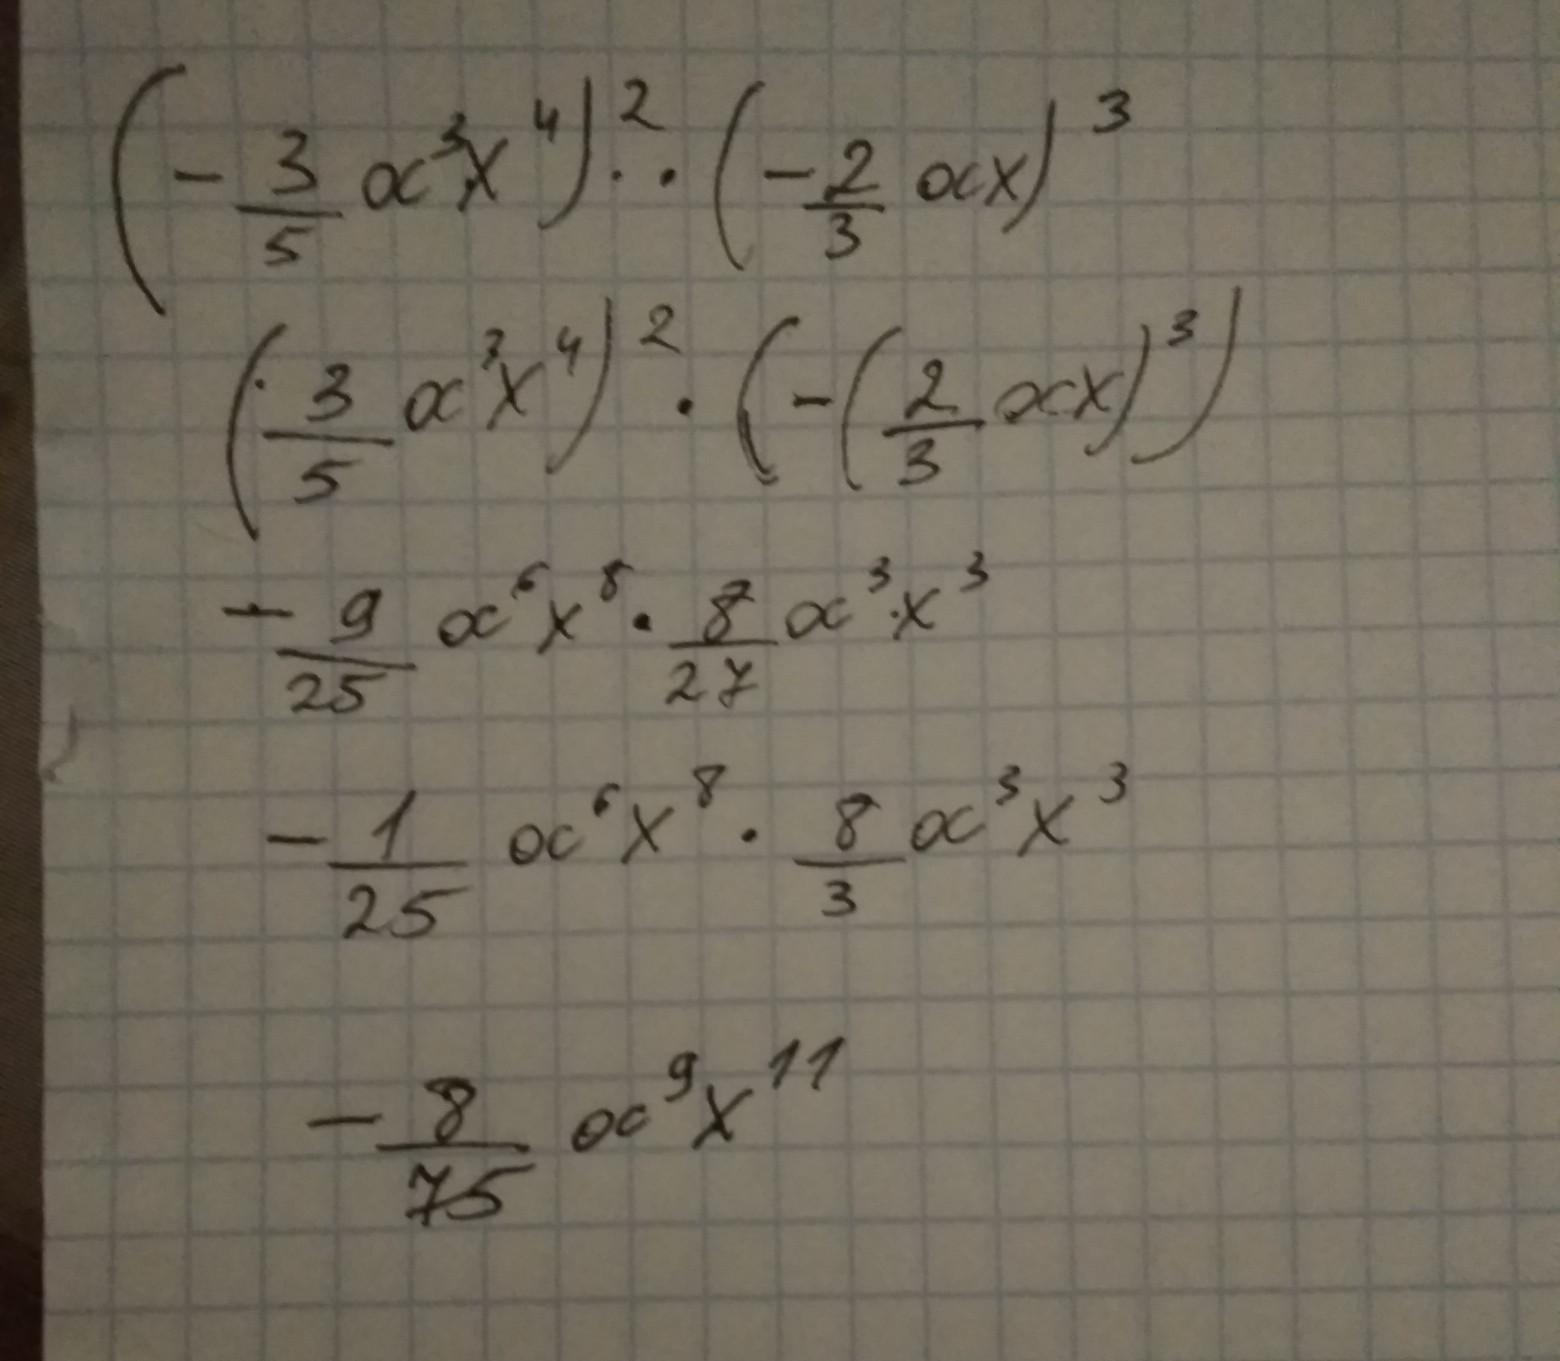 (-3/5 a³x⁴)² · · (-2/3 ax)³
(3/5 a³x⁴)² · (-(2/3 ax)³)
-9/25 a⁶x⁸ · 8/27 a³·x³
-1/25 a⁶x⁸ · 8/3 a³x³
-8/75 a⁹x¹¹